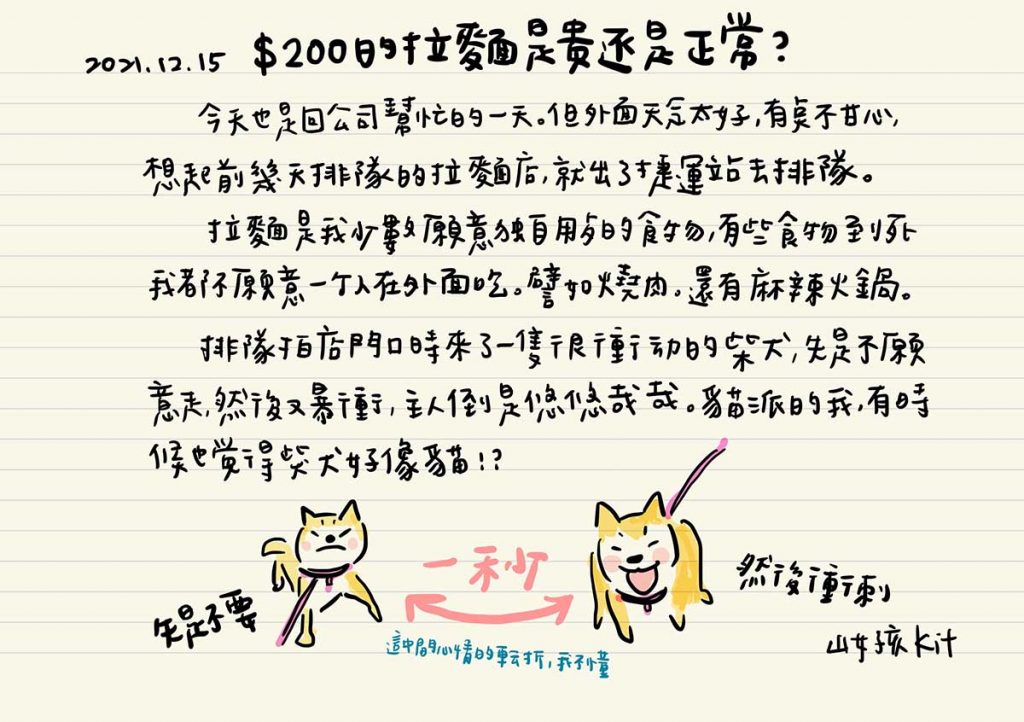 2021.12.15 $200的拉麵是貴還是正常?
今天也是回公司幫忙的一天。但外面天氣太好,有点不甘心,
想起前幾天排隊的拉麵店,就出了捷運站去排隊。
拉麵是我少數願意獨自用餐的食物,有些食物到死
我都不願意一个人在外面吃。譬如燒肉。還有麻辣火鍋。
排隊拍店門口時來了一隻很衝动的柴犬,先是不願
意走,然後又暴衝,主人倒是悠悠哉哉。貓派的我,有時
候也覚得柴犬好像貓!?
先是不要
一秒
然後衝刺
這中間心情的転折,我不懂
山女孩Kit